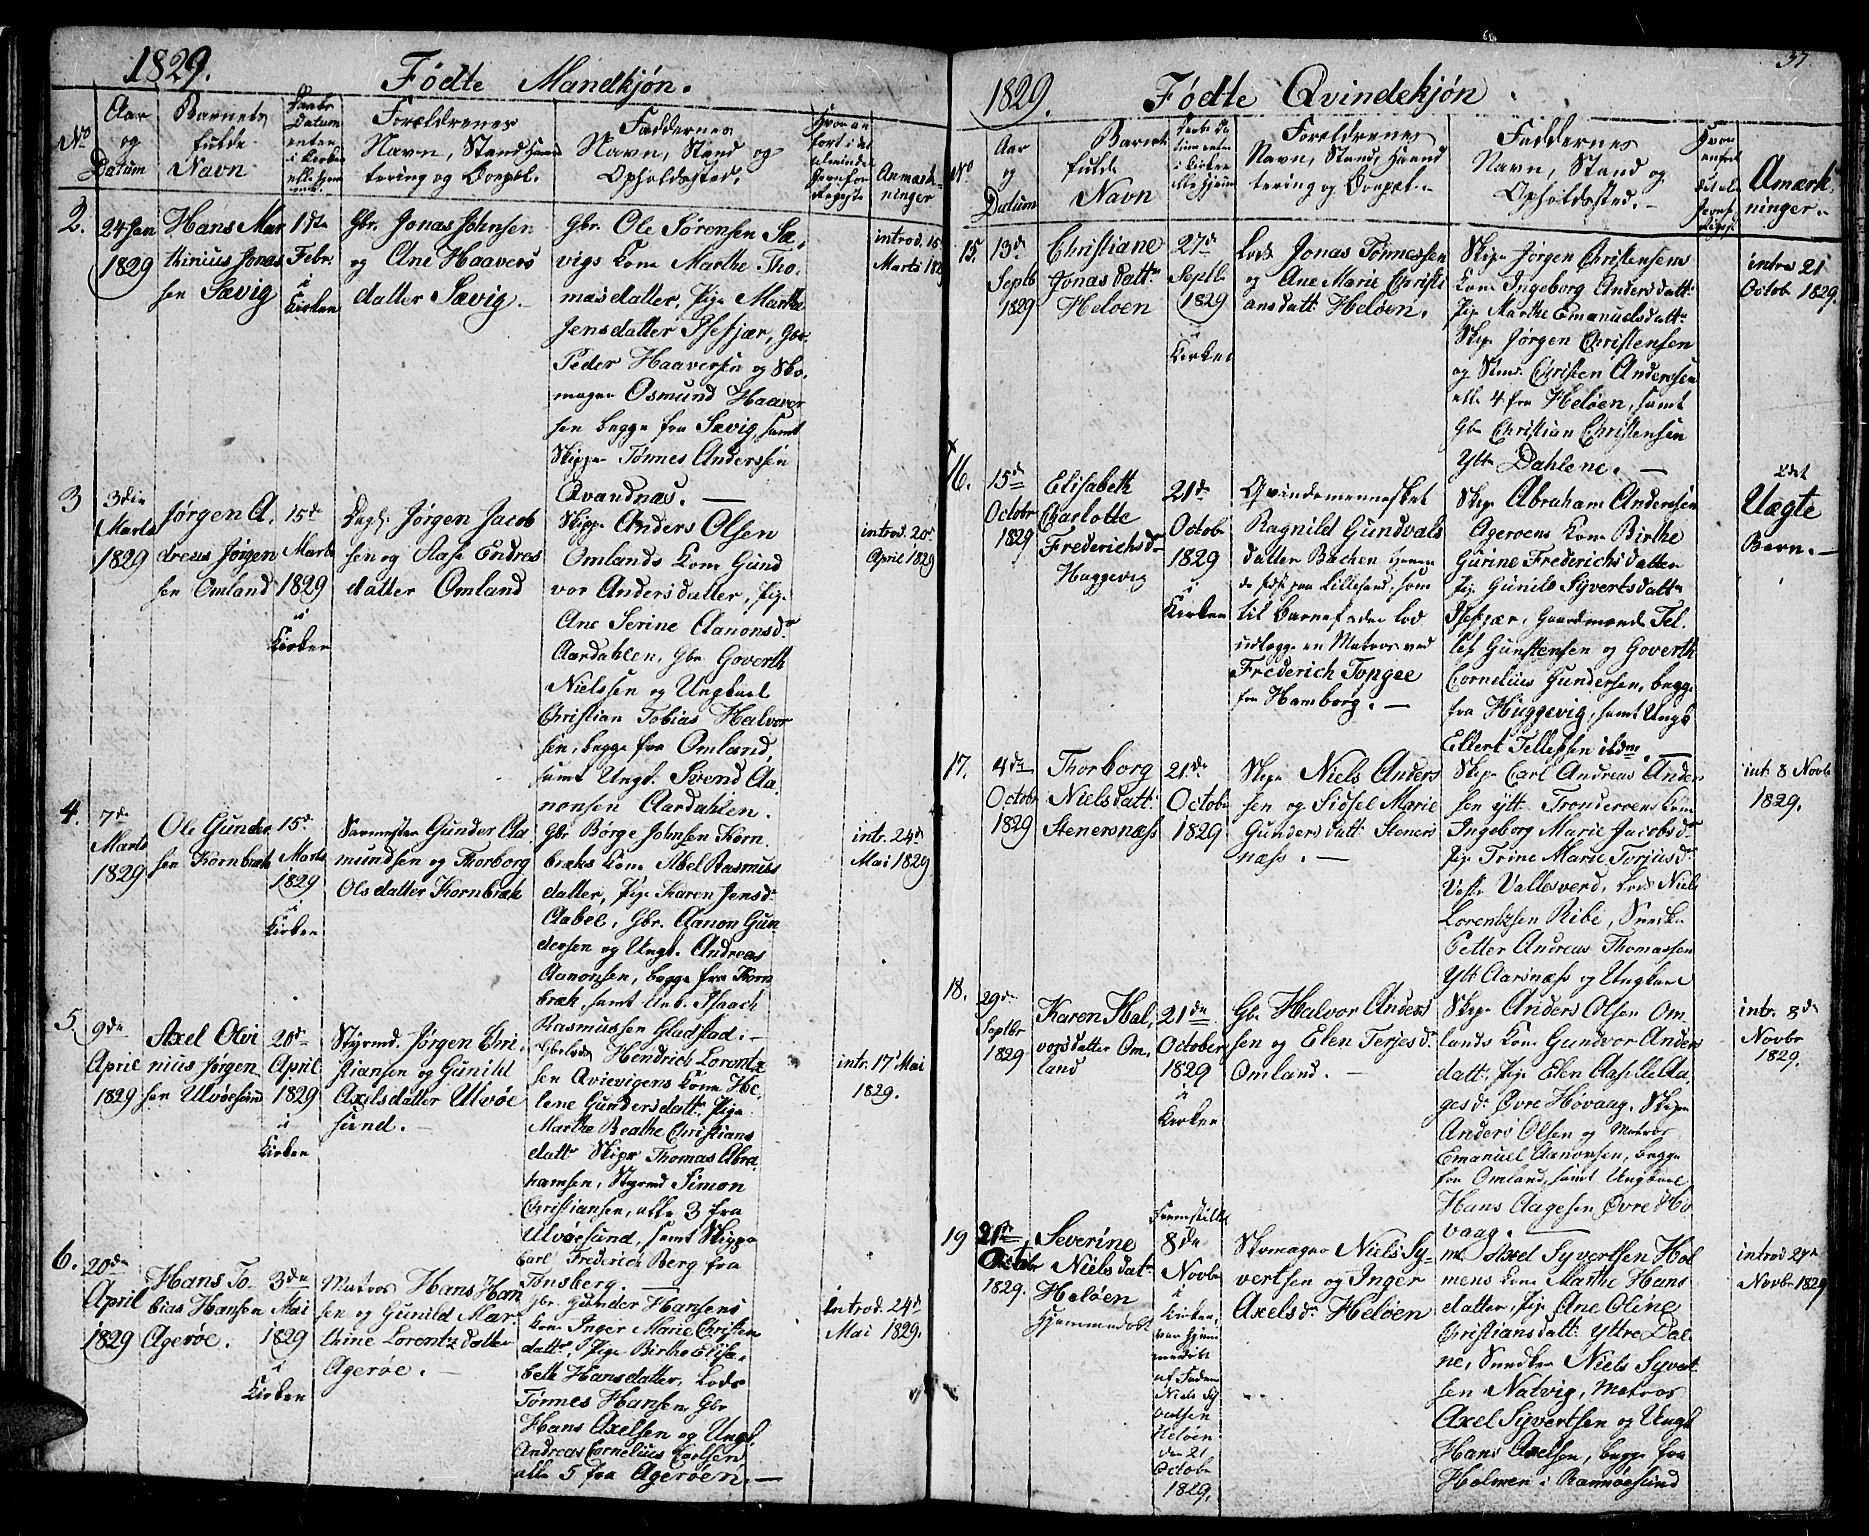 1829.
Fødte Mandkjøn.
No
Aar
og
Datum
Barnets
fulde
Navn
Daabs
Datum
enten
i Kirken
eller hjem
me
Forældrenes
Navn, Stand Haand
tering og Boepæl.
Faddernes
Navn, Stand og
Opholdssted.
Hvor an
ført i det
almindel
Jevnfør
Register
Anmærk-
ninger
2.
24 Jan
1829
Hans Mar
thinius Jonas
sen Sævig
1ste
Febr.
i
Kirken
Gbr. Jonas Johnsen
og Ane Haavers
datter Sævig.
Gbr. Ole Sørensen Sæ,
vigs Kone Marthe Tho-
masdatter, Pige Marthe
Jensdatter Isefjær, Gbr.
Peder Haaversen og Sko,
mager Osmund Haaver
sen begge fra Sævig, samt
Skipper Tønnes Andersen
Qvandnæs. —
introd. 15
Marts 1829
3
3die
Marts
1829
Jørgen A.
dreas Jørgen
sen Omland
15de
Marts
1829
i
Kirken
Jørgen Jacob
sen og Aase Endres
datter Omland
Skipp. Anders Olsen
Omlands Kone Gund
vor Andersdatter, Pige
Ane Serine Aanonsdr
Aardahlen, Gbr. Goverth
Nielssen og Ungkarl
Christian Tobias Halvor
sen, begge fra Omland,
samt Ungk. Svend Aa,
nonsen Aardahlen.
introd. 20de
April 1829
4.
7de
Marts
1829
Ole Gunder
sen Kornbræk
15de
Marts
1829
i
Kirken
Gunder Aa
mundsen og Thorborg
Olsdatter Kornbræk
Gbr. Børge Johnsen Korn
bræks Kone Abel Rasmus
datter, Pige Karen Jensdr
Aabel, Gbr. Aanon Gun
dersen og Ungk. Andreas
Aanonsen, begge fra Korn
bræk, samt Unk. Isaach
Rasmussen Gladstad. —
intr. 24de
Mai 1829
5.
9de
April
1829
Axel Olvi
nius Jørgen
sen Ulvøesund
20de
April
1829
i
Kirken
Styrmd. Jørgen Chri
stiansen og Gunild
Axelsdatter Ulvøe
sund. —
Hendrich Lorentz
sen Qvievigens Kone He,
lene Gundersdattr, Pige
Marthe Beathe Christians
dattr Skipr Thomas Abra
hamsen, Styrmd Simon
Christiansen, alle 3 fra
Ulvøesund, samt Skipper
Carl Frederich Berg fra
Tønsberg. —
intr. 17de Mai
1829.
6.
20de
April
1829
Hans To-
bias Hansen
Agerøe.
3de
Mai
1829
i
Kirken
Matros Hans Han
sen og Gunild Mar
thine Lorentzdatter
Agerøe. —
Gbr. Gunder Hansens
Kone Inger Marie Christen
dattr, Pige Birthe Elisa-
beth Hansdatter, Lods
Tønnes Hansen, Gbr
Hans Axelsen og Ungk.
Andreas Cornelius Carlsen
alle 5 fra Agerøen. —
introd. 24de
Mai 1829.
57
1829.
Fødte Qvindekjøn.
No
Aar
og
Datum
Barnets
fulde
Navn
Daabs Da
tum enten
i Kirken
eller hjem
Forældrenes
Navn, Stand, Haand
tering og Boepæl. -
Faddernes
Navn, Stand og
Opholdssted. -
Hvor
anført
Amærk
ninger.
15.
13de
Septb
1829
Christiane
Jonasdattr
Heløen
27de
Septb
1829
i
Kirken
Lods Jonas Tønnessen
og Ane Marie Christi
ansdatt. Heløen.
Skipr Jørgen Christensens
Kone Ingeborg Andersdatt.
Pig. Marthe Emanuelsdattr
Skipr Jørgen Christensen
og Christen Andersen
alle 4 fra Heløen, samt
Gbr Christian Christensen
Ytt. Dahlene. —
intro 21
Octob 1829.
16.
15de
Octobr
1829
Elisabeth
Charlotte
Frederichsdr
Huggevig
21de
Octobr
1829
i
Kirken
Qvindemennesket
Ragnild Gundvals
datter Bachen
paa Lillesand, som
til Barnefader lod
udlægge en Matros ved
Frederich Topgee
fra Hamborg. —
Skipr Abraham Andersen
Agerøens Kone Birthe
Gurine Frederichsdatter
Pig. Gunild Syvertsdattr
Isefjær, Gaardmænde Tel
lef Gunstensen og Goverth
Cornelius Gundersen, begge
fra Huggevig, samt Ungk
Ellert Tellefsen ibdm.
2det
Uægte
Barn. —
17.
4de
Octobr
1829
Thorborg
Nielsdatt.
Stenersnæss
21de
Octobr
1829
Skipr Niels Anders
sen og Sidsel Marie
Gundersdatt. Steners
næss. —
Skipr Carl Andreas Ander
sen ytt. Trønderøens Kone
Ingeborg Marie Jacobsdr
Pig. Trine Marie Torjusdr
Vestr Vallesverd, Lods Niels
Lorentzsen Ribe, Snedker
Petter Andreas Thomassen
Ytt. Aarsnæss og Ungkarl
int. 8 Novbr
1829.
18.
29de
Septbr
1829
Karen Hal,
vorsdatter Om,
land
21de
October
1829
i
Kirken
Gbr Halvor Anders
sen og Elen Terjesdr
Omland. —
Skipr Anders Olsen Om
lands Kone Gundvor Anders
datt. Pige Elen Aaselle Aa,
gesdr Øvre Høvaag. Skipr
Anders Olsen og Matros
Emanuel Aanonsen, begge
fra Omland, samt Ungkarl
Hans Aagesen Øvre Hø
vaag. —
intr. 8de
Novbr
1829.
19
21de
Octobr
1829.
Severine
Nielsdatr
Heløen
Hjemmedøbt
Fremstillet
8de
Novbr
i
Kirken,
var hjem
medøbt
af Faderen
Niels Sy
vertsen
Heløen
den 21
Octobr
1829.
Skomager Niels Sy-
vertsen og Inger
Axelsdr Heløen
Axel Syvertsen Hol
mens Kone Marthe Hans
datter, Pige Ane Oline
Christiansdatt. Yttre Dal
ne, Snedker Niels Syvert
sen Natvig, Matros
Axel Syvertsen og Ungk
Hans Axelsen, begge fra
Holmen i Ramsøesund
introd 27de
Novbr 1829